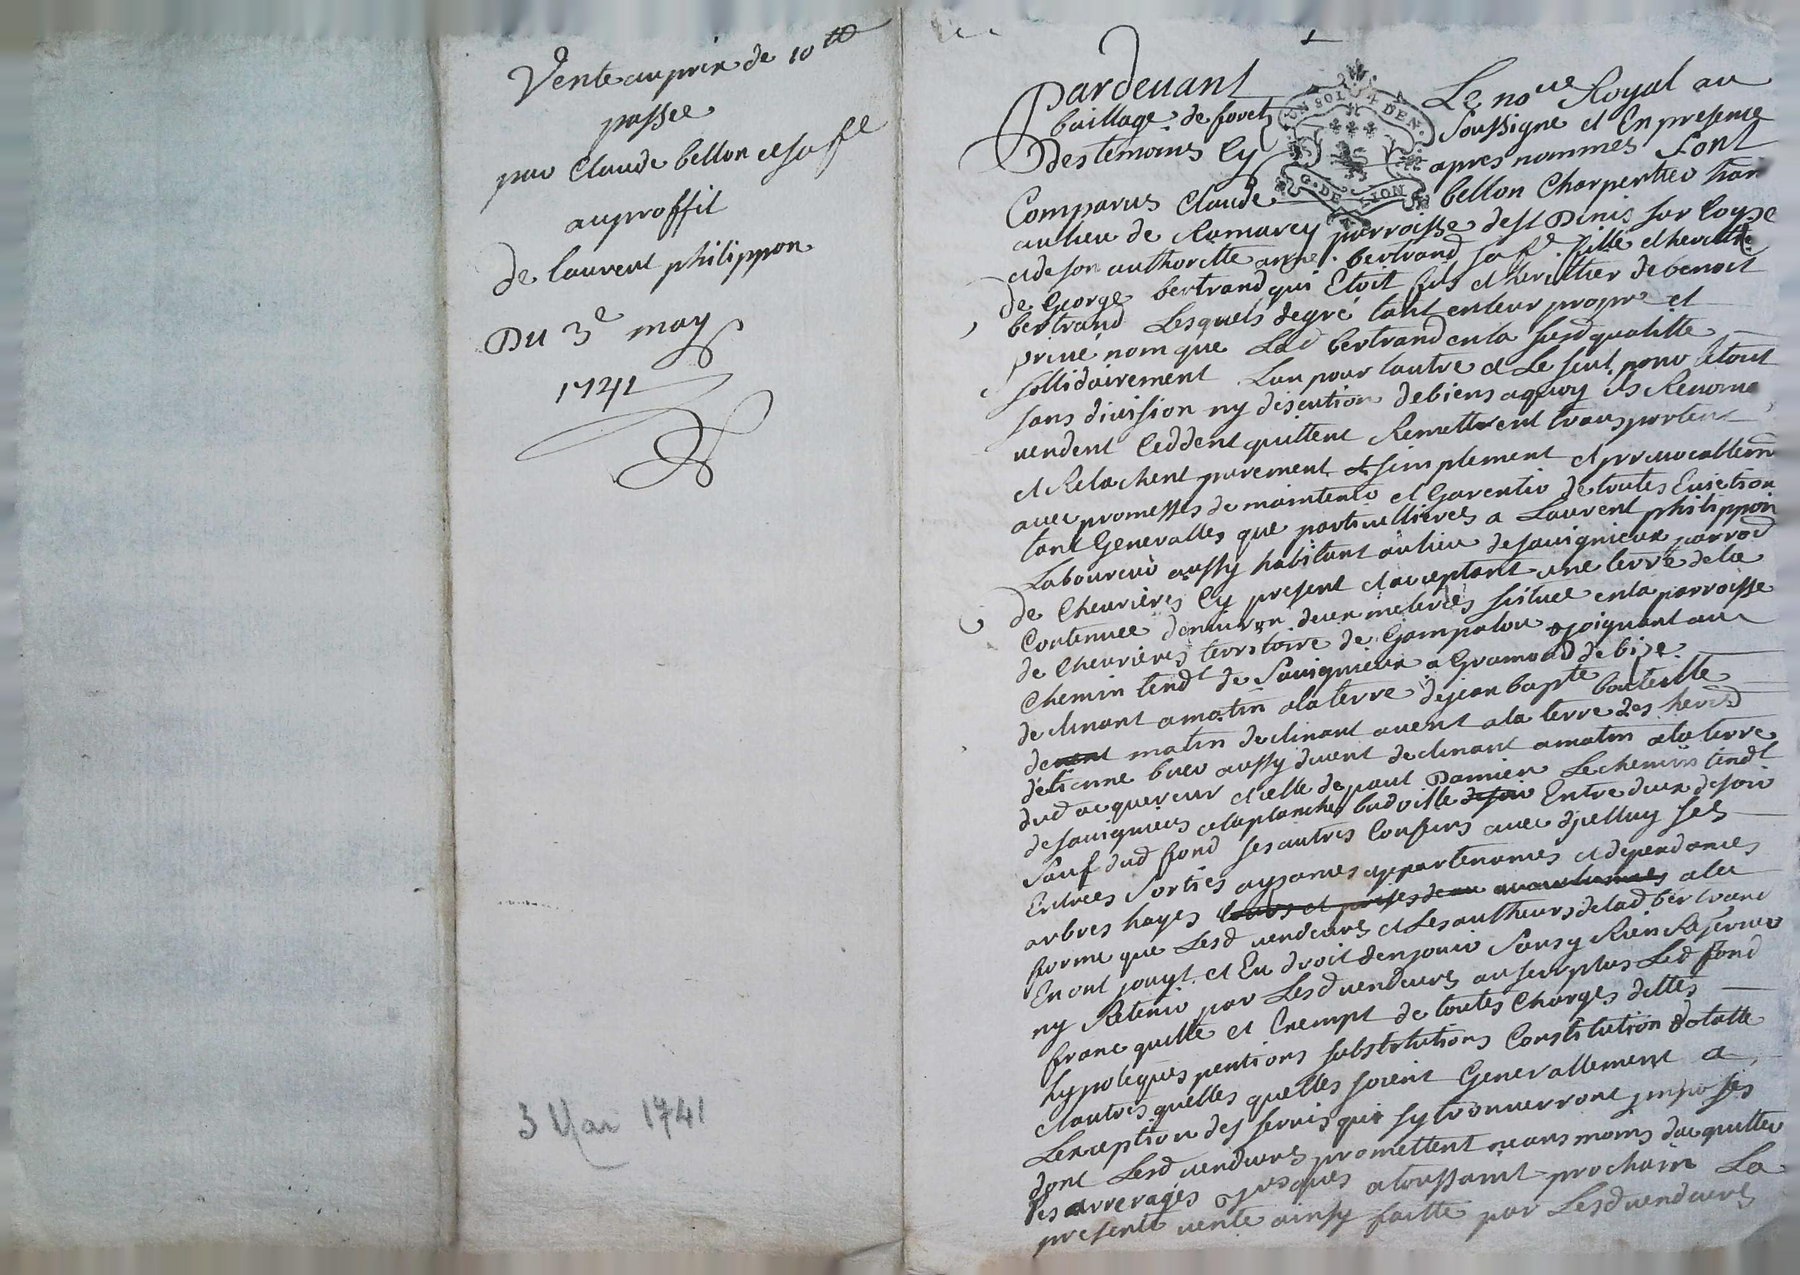 Vente au prix de 10tt
passée
par Claude bellon et sa fe
au proffit
de laurent philippon
Du 3e may
1741
3 Mai 1741
UN SOL 4 DEN.
G. DE LION
Pardevant Le nore Royal au
baillage de forets soussigné et En presence
Des temoins Cy apres nommés sont
Comparus Claude bellon Charpentier han
au lieu de parroisse de st Dinis sur Coyse
et de son authoritte anne bertrand sa fe fille et heritre
de George bertrand qui Etoit fils et heritier de benoit
bertrand Lesquels de gré tant en leur propre et
privé nom que Lad bertrand en la susd qualitte
sollidairement L'un pour l'autre et Le seul pour le tout
sans division ny discution de biens a quoy ils Renonce
vendent Ceddent quittent Remettent transportent
et Relachent purement et simplement et yrrevocablemt
avec promesses de maintenir et Garentir de toutes Eviction
tant Generalles que particullieres a Laurent philippon
Laboureur aussy habitant au lieu de savignieux parrod
de Chevrieres Cy present et acceptant une terre de la
Contenue d'environ deux meterées scituée en la parroisse
de Chevrieres territoire de joignant au
Chemin tendt de Savignieux a Gramond de bize
declinant a matin a la terre de jean bapte bouteille
de matin declinant a vent a la terre des herd
d'etienne buer aussy de vent declinant a matin a la terre
dud acquereur et celle de paul Damien Le chemin tendt
de savignieux a la planche Entre deux de soir
Sauf dud fond ses autres Confins avec d'yelluy ses
Entrées Sorties aysances appartenances et dependances
arbres hayes a la
forme que Lesd vendeurs et Les autheurs de lad bertrand
En ont jouyt et Eu droit d'en jouir Sans y Rien Reserver
ny Retenir par Lesd vendeurs au surplus Led fond
franc quitte et Exempt de toutes Charges dettes
hypoteques pentions substitutions Constitution dotalle
et autres quelles quelles soient Generallement a
L'exeption des servis qui sy trouverront imposés
dont Lesd vendeurs promettent neansmoins d'acquitter
les arrerages jusques a toussaint prochain La
presente vente ainsy faitte par Lesd vendeurs